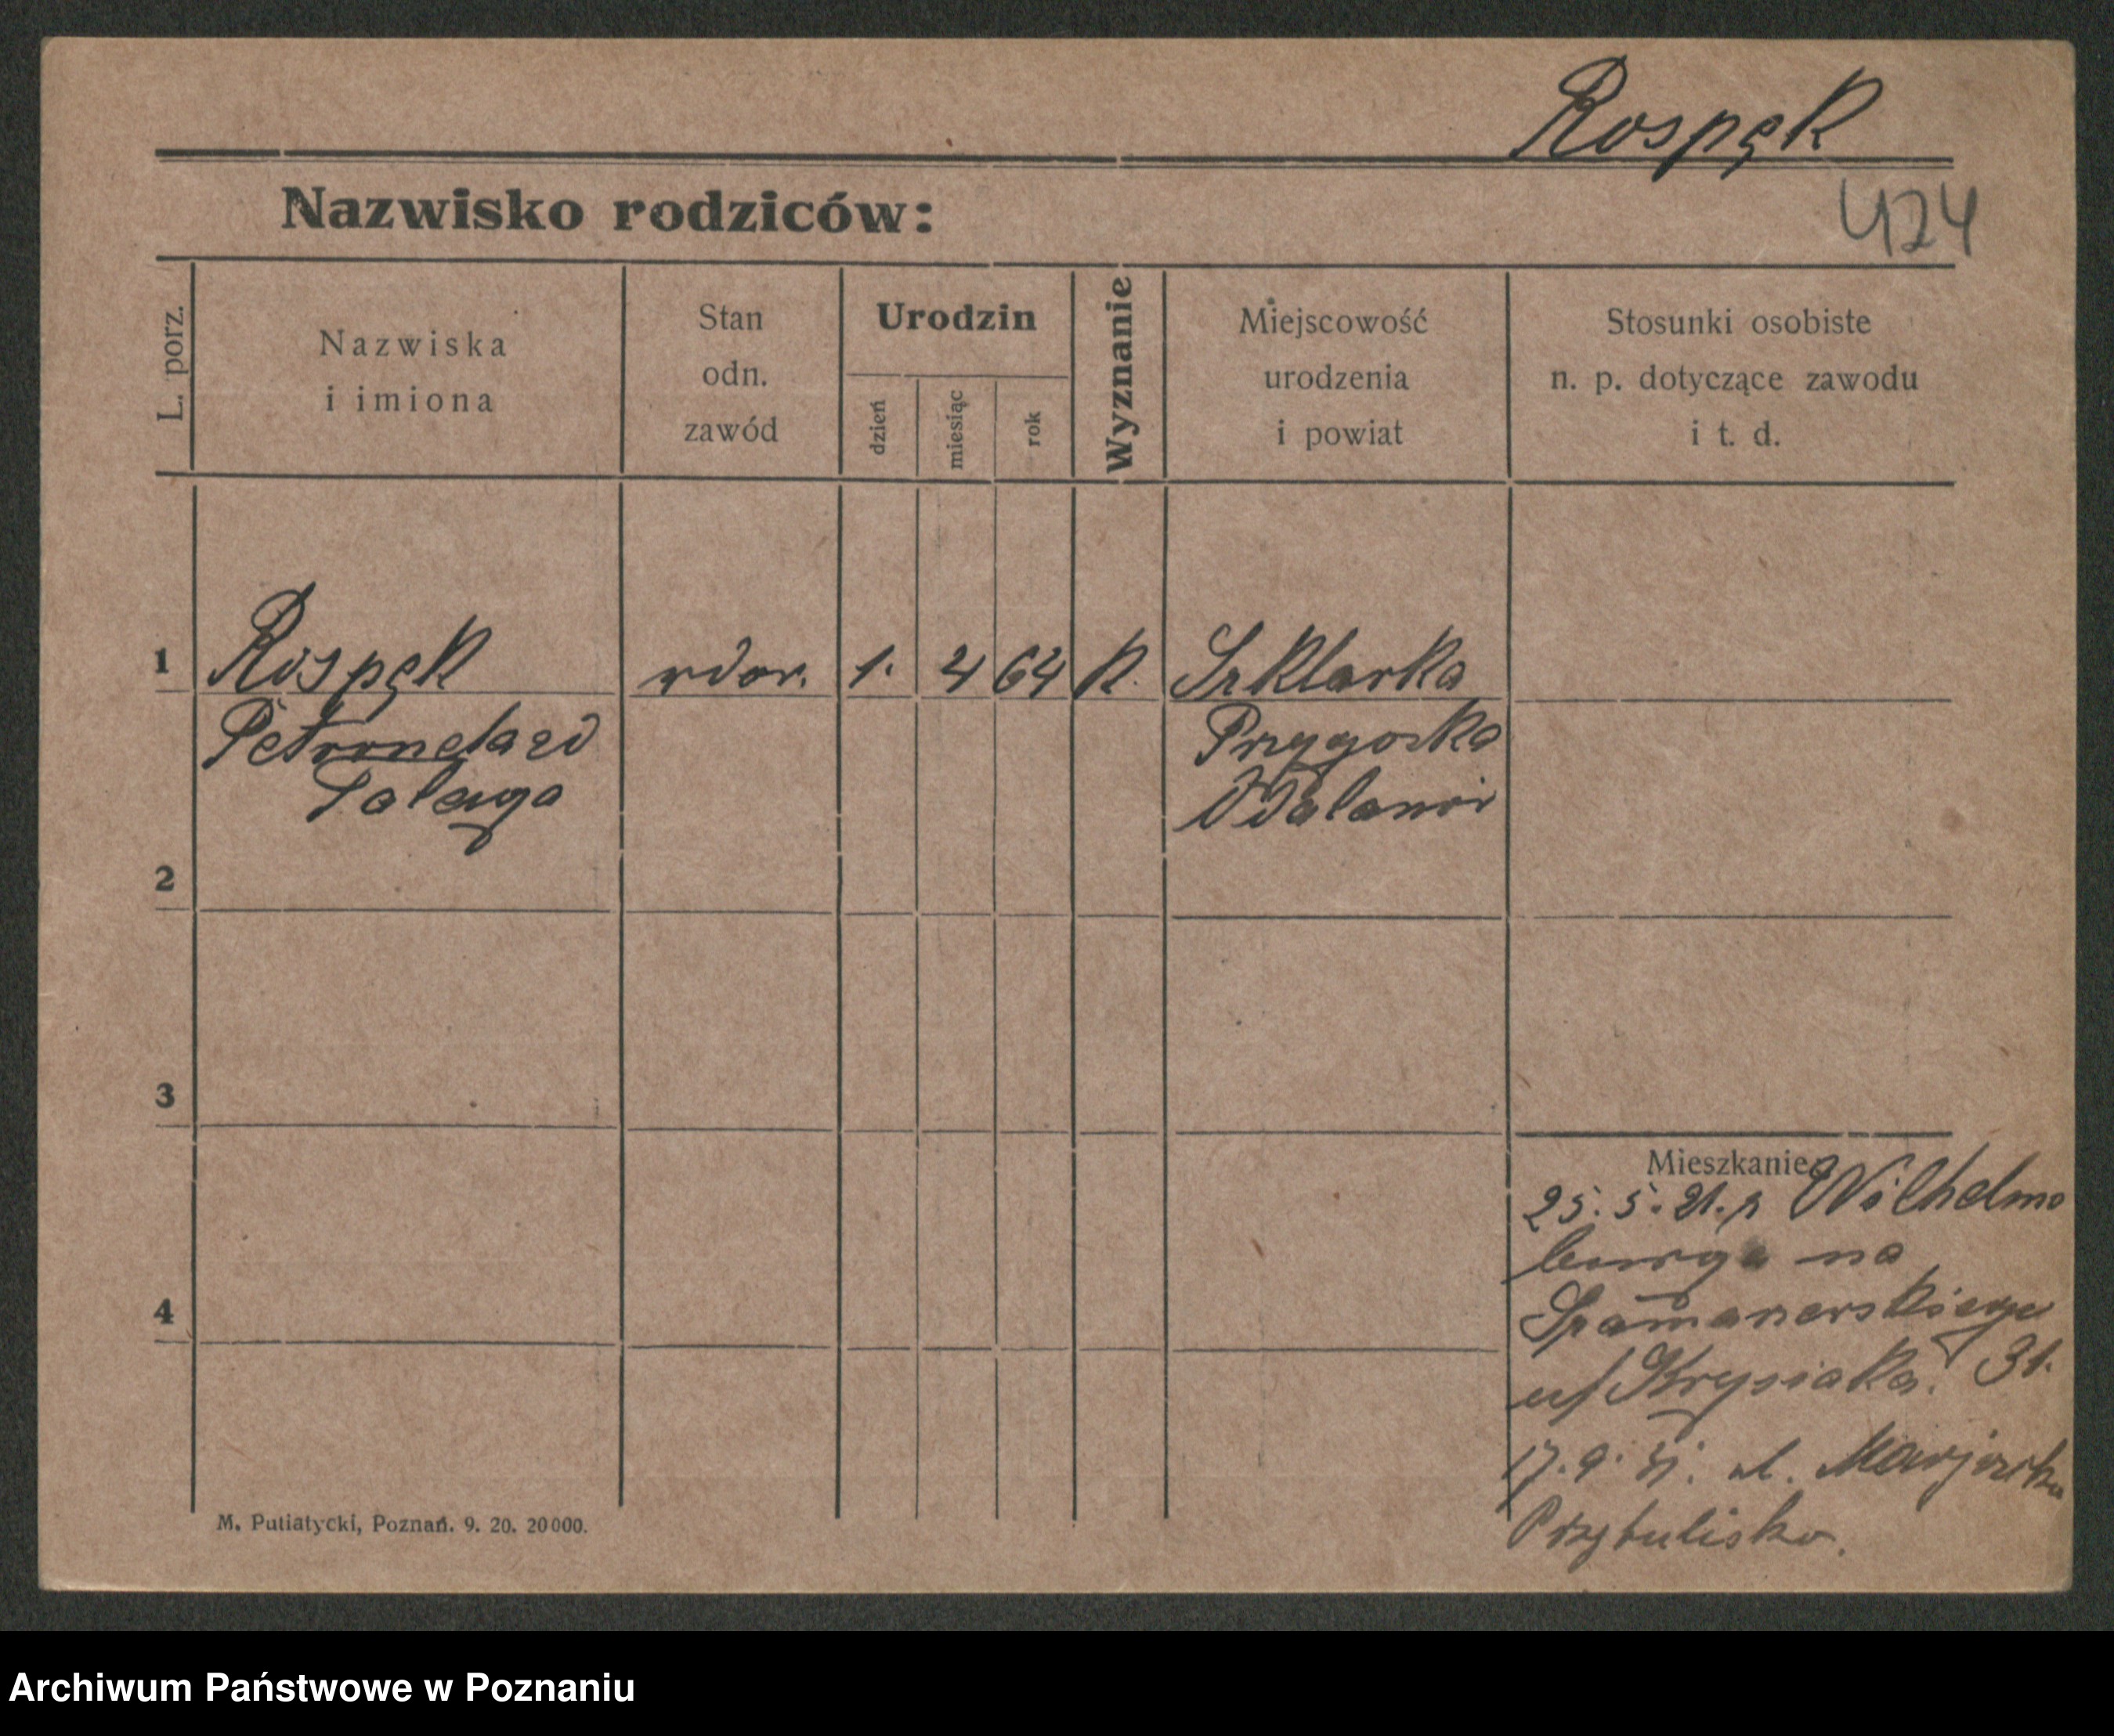 Rospęk
424
Nazwisko rodziców:
L. porz.
Nazwiska
i imiona
Stan
odn.
zawód
Urodzin
dzień
miesiąc
rok
Wyznanie
Miejscowość
urodzenia
i powiat
Stosunki osobiste
n. p. dotyczące zawodu
i t. d.
1
Rospęk
wdow.
1.
4
64
K.
Szklarka
Petronela zd
Przygodzka
Odolanów
2
3
4
Mieszkanie
25. 5. 21. z Wilhelms
burga na
u/ Krysiaka. 31.
17. 9. 31. ul.
Przytulisko.
M. Putiatycki, Poznań. 9. 20. 20000.
Archiwum Państwowe w Poznaniu